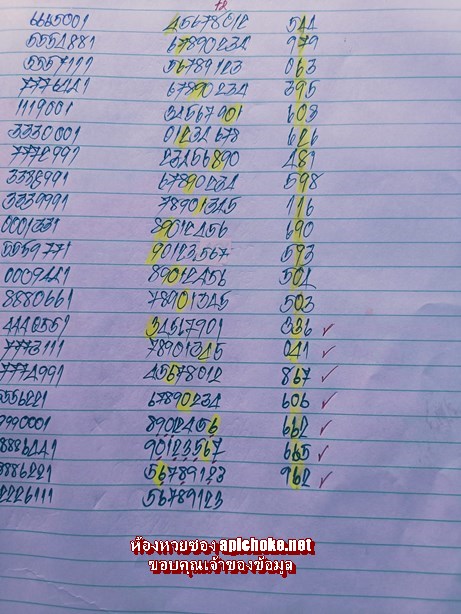 12
6665001 45678012 544
5551881 67890234 979
5557111 56789123 063
7776441 67890234 395
1119001 34567901 603
3330001 01234678 626
7772991 23456890 481
3386991 67890234 598
3339991 78901345 116
0001331 89012456 690
5559771 90123567 593
0009441 89012456 504
8880661 78901345 503
4446551 34567901 336 ✓
7773111 78901345 041 ✓
7774991 45678012 867 ✓
5556221 67890234 606 ✓
9990001 89012456 662 ✓
8886441 90123567 665 ✓
8886221 56789123 962 ✓
2226111 56789123
ห้องหวยซอง apichoke.net
ขอบคุณเจ้าของข้อมูล